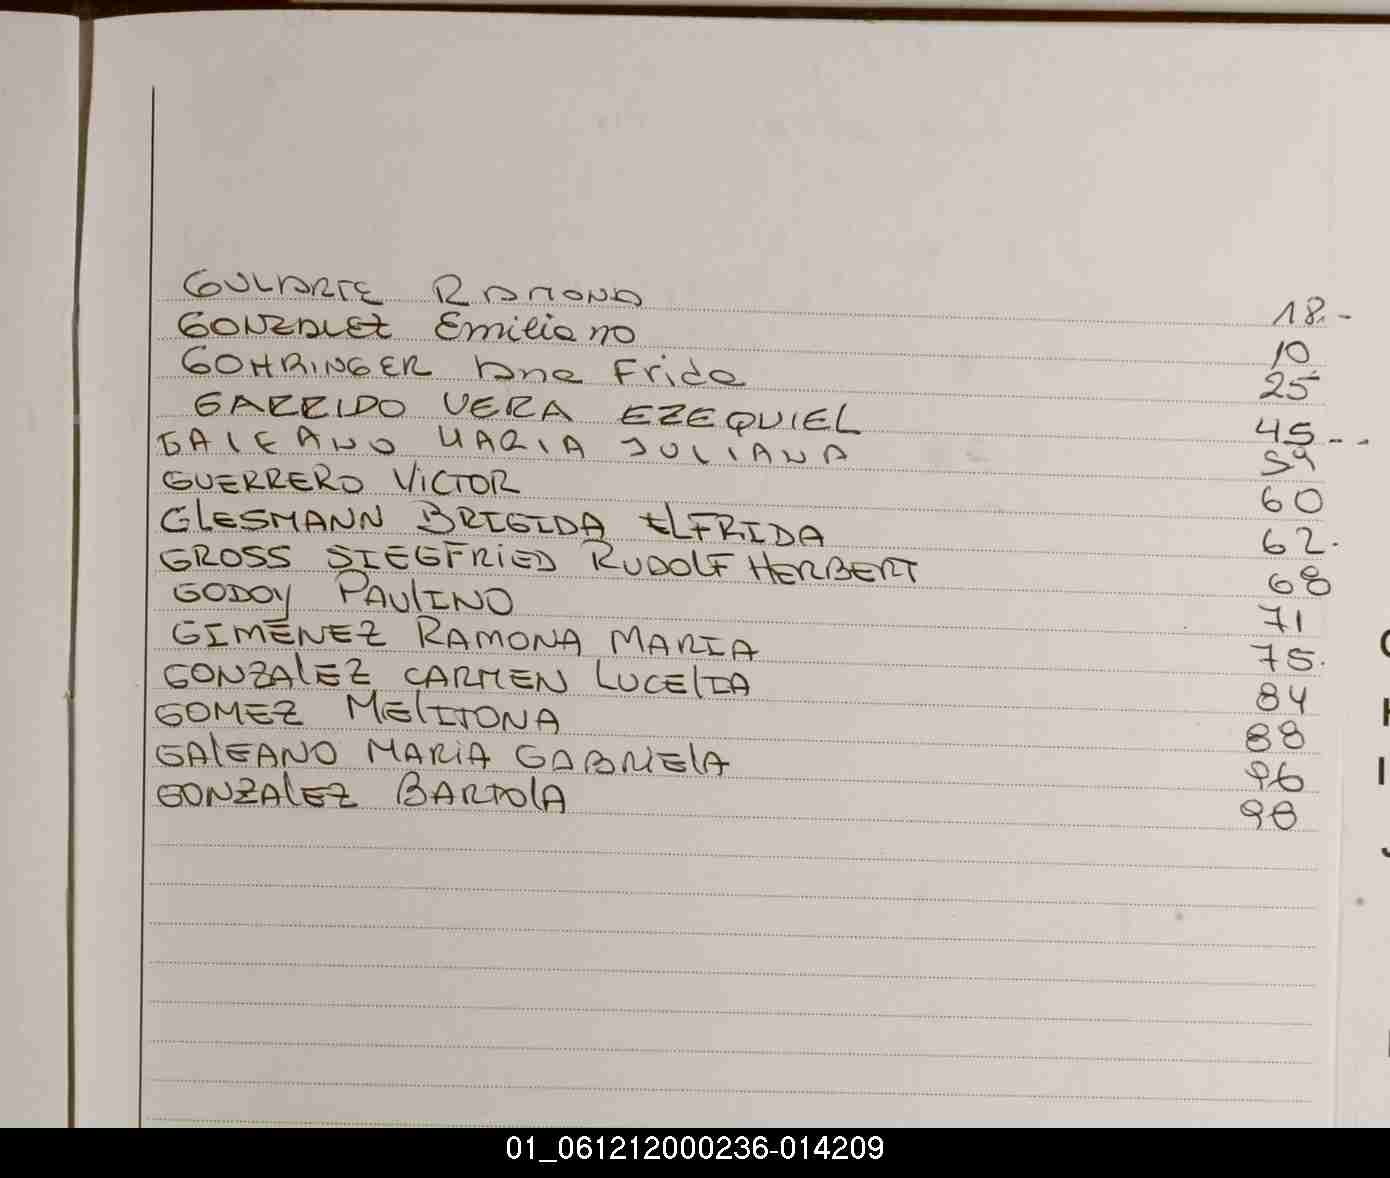 GULARTE RAMONA 18.-
GONZALEZ Emiliano 10
GOHRINGER Ana Frida 25
GARRIDO VERA EZEQUIEL 45--
GALEANO MARIA JULIANA 59
GUERRERO VICTOR 60
GLESMANN BRIGIDA ELFRIDA 62.
GROSS SIEGFRIED RUDOLF HERBERT 68
GODOY PAULINO 71
GIMENEZ RAMONA MARIA 75.
GONZALEZ CARMEN LUCELIA 84
GOMEZ MELITONA 88
GALEANO MARIA GABRIELA 96
GONZALEZ BARTOLA 98
01_061212000236-014209